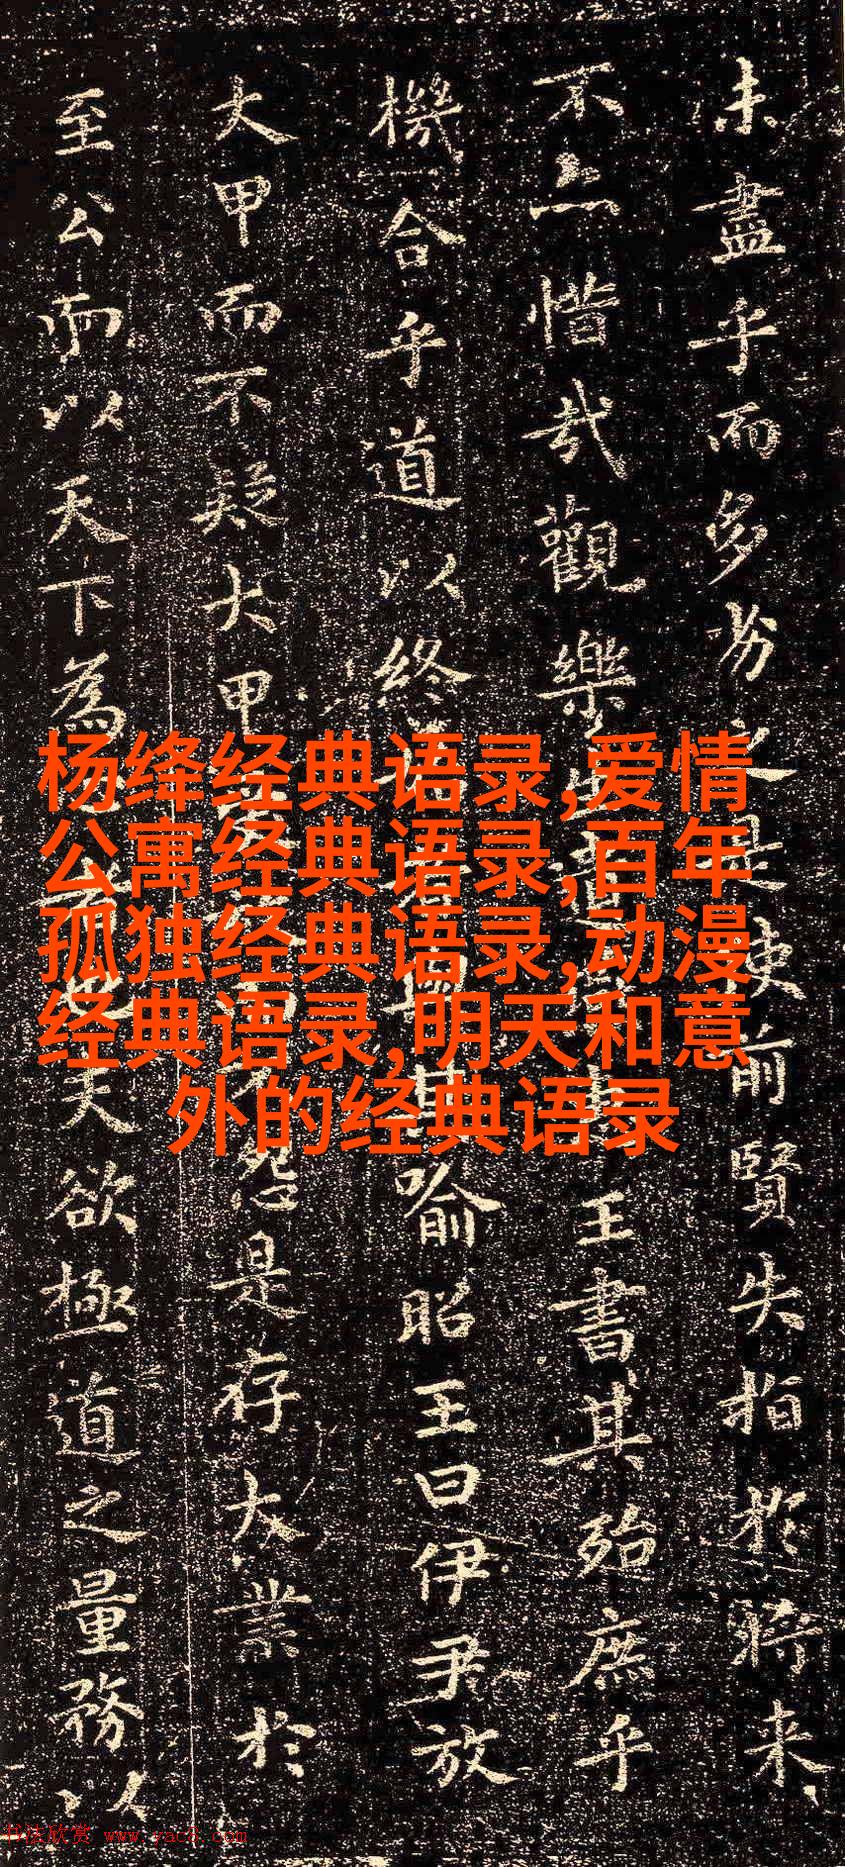 未盡乎而多劣之是使前賢失指於將来
不亦惜哉觀樂生遺王書其殆庶乎
機合乎道以終者與其喻昭王曰伊尹放
大甲而不疑大甲不怨是存大業於
至公而以天下為夫欲極道之量務以
杨绛经典语录,爱情
公寓经典语录,百年
孤独经典语录,动漫
经典语录,明天和意
外的经典语录
书法欣赏 www.yac8.com